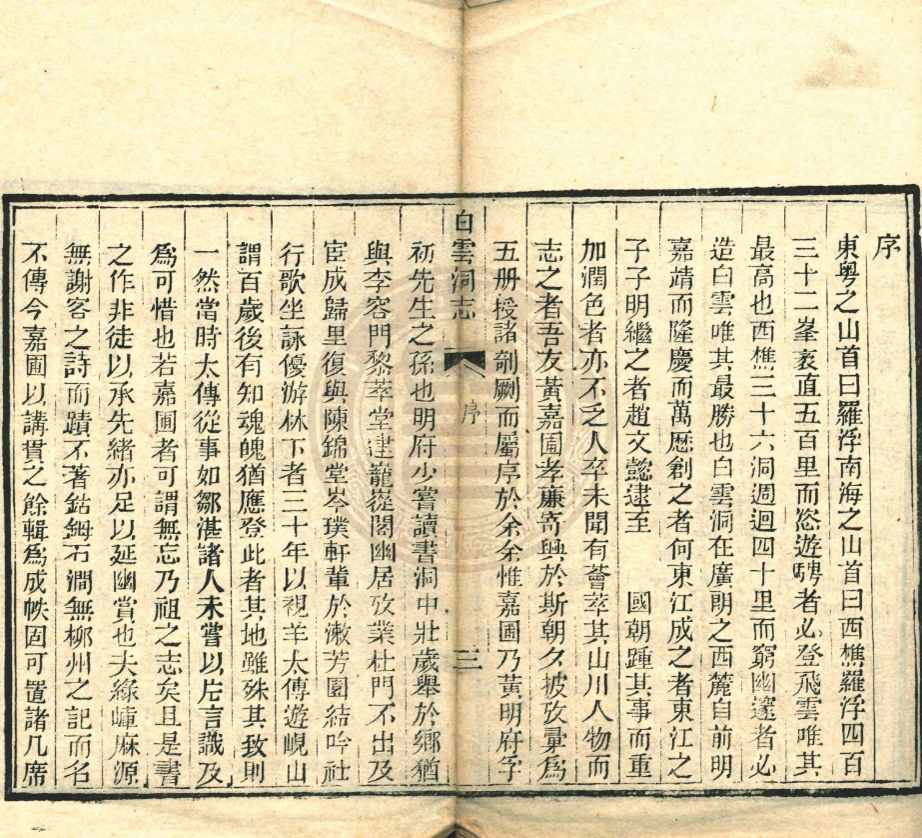 序
東粤之山首曰羅浮南海之山首曰西樵羅浮四百
三十二峯袤直五百里而恣遊騁者必登飛雲唯其
最高也西樵三十六洞週迴四十里而窮幽邃者必
造白雲唯其最勝也白雲洞在廣朗之西麓自前明
嘉靖而隆慶而萬歷創之者何東江成之者東江之
子子明繼之者趙文懿逮至 國朝踵其事而重
加潤色者亦不乏人卒未聞有薈萃其山川人物而
志之者吾友黃嘉圃孝亷寄興於斯朝夕披攷彚爲
五册授諸剞劂而屬序於余余惟嘉圃乃黃明府字
白雲洞志 序 三
初先生之孫也明府少嘗讀書洞中壯歲舉於鄉猶
與李容門黎萃堂建龍㟅閣幽居攷業杜門不出及
宦成歸里復與陳錦堂岑璞軒輩於漱芳園結吟社
行歌坐詠優游林下者三十年以視羊太傅遊峴山
謂百歲後有知魂魄猶應登此者其地雖殊其致則
一然當時太傅從事如鄒湛諸人未嘗以片言識及
爲可惜也若嘉圃者可謂無忘乃祖之志矣且是書
之作非徒以承先緒亦足以延幽賞也夫綠嶂麻源
無謝客之詩而蹟不著鈷鉧石澗無柳州之記而名
不傳今嘉圃以講貫之餘輯爲成帙固可置諸几席